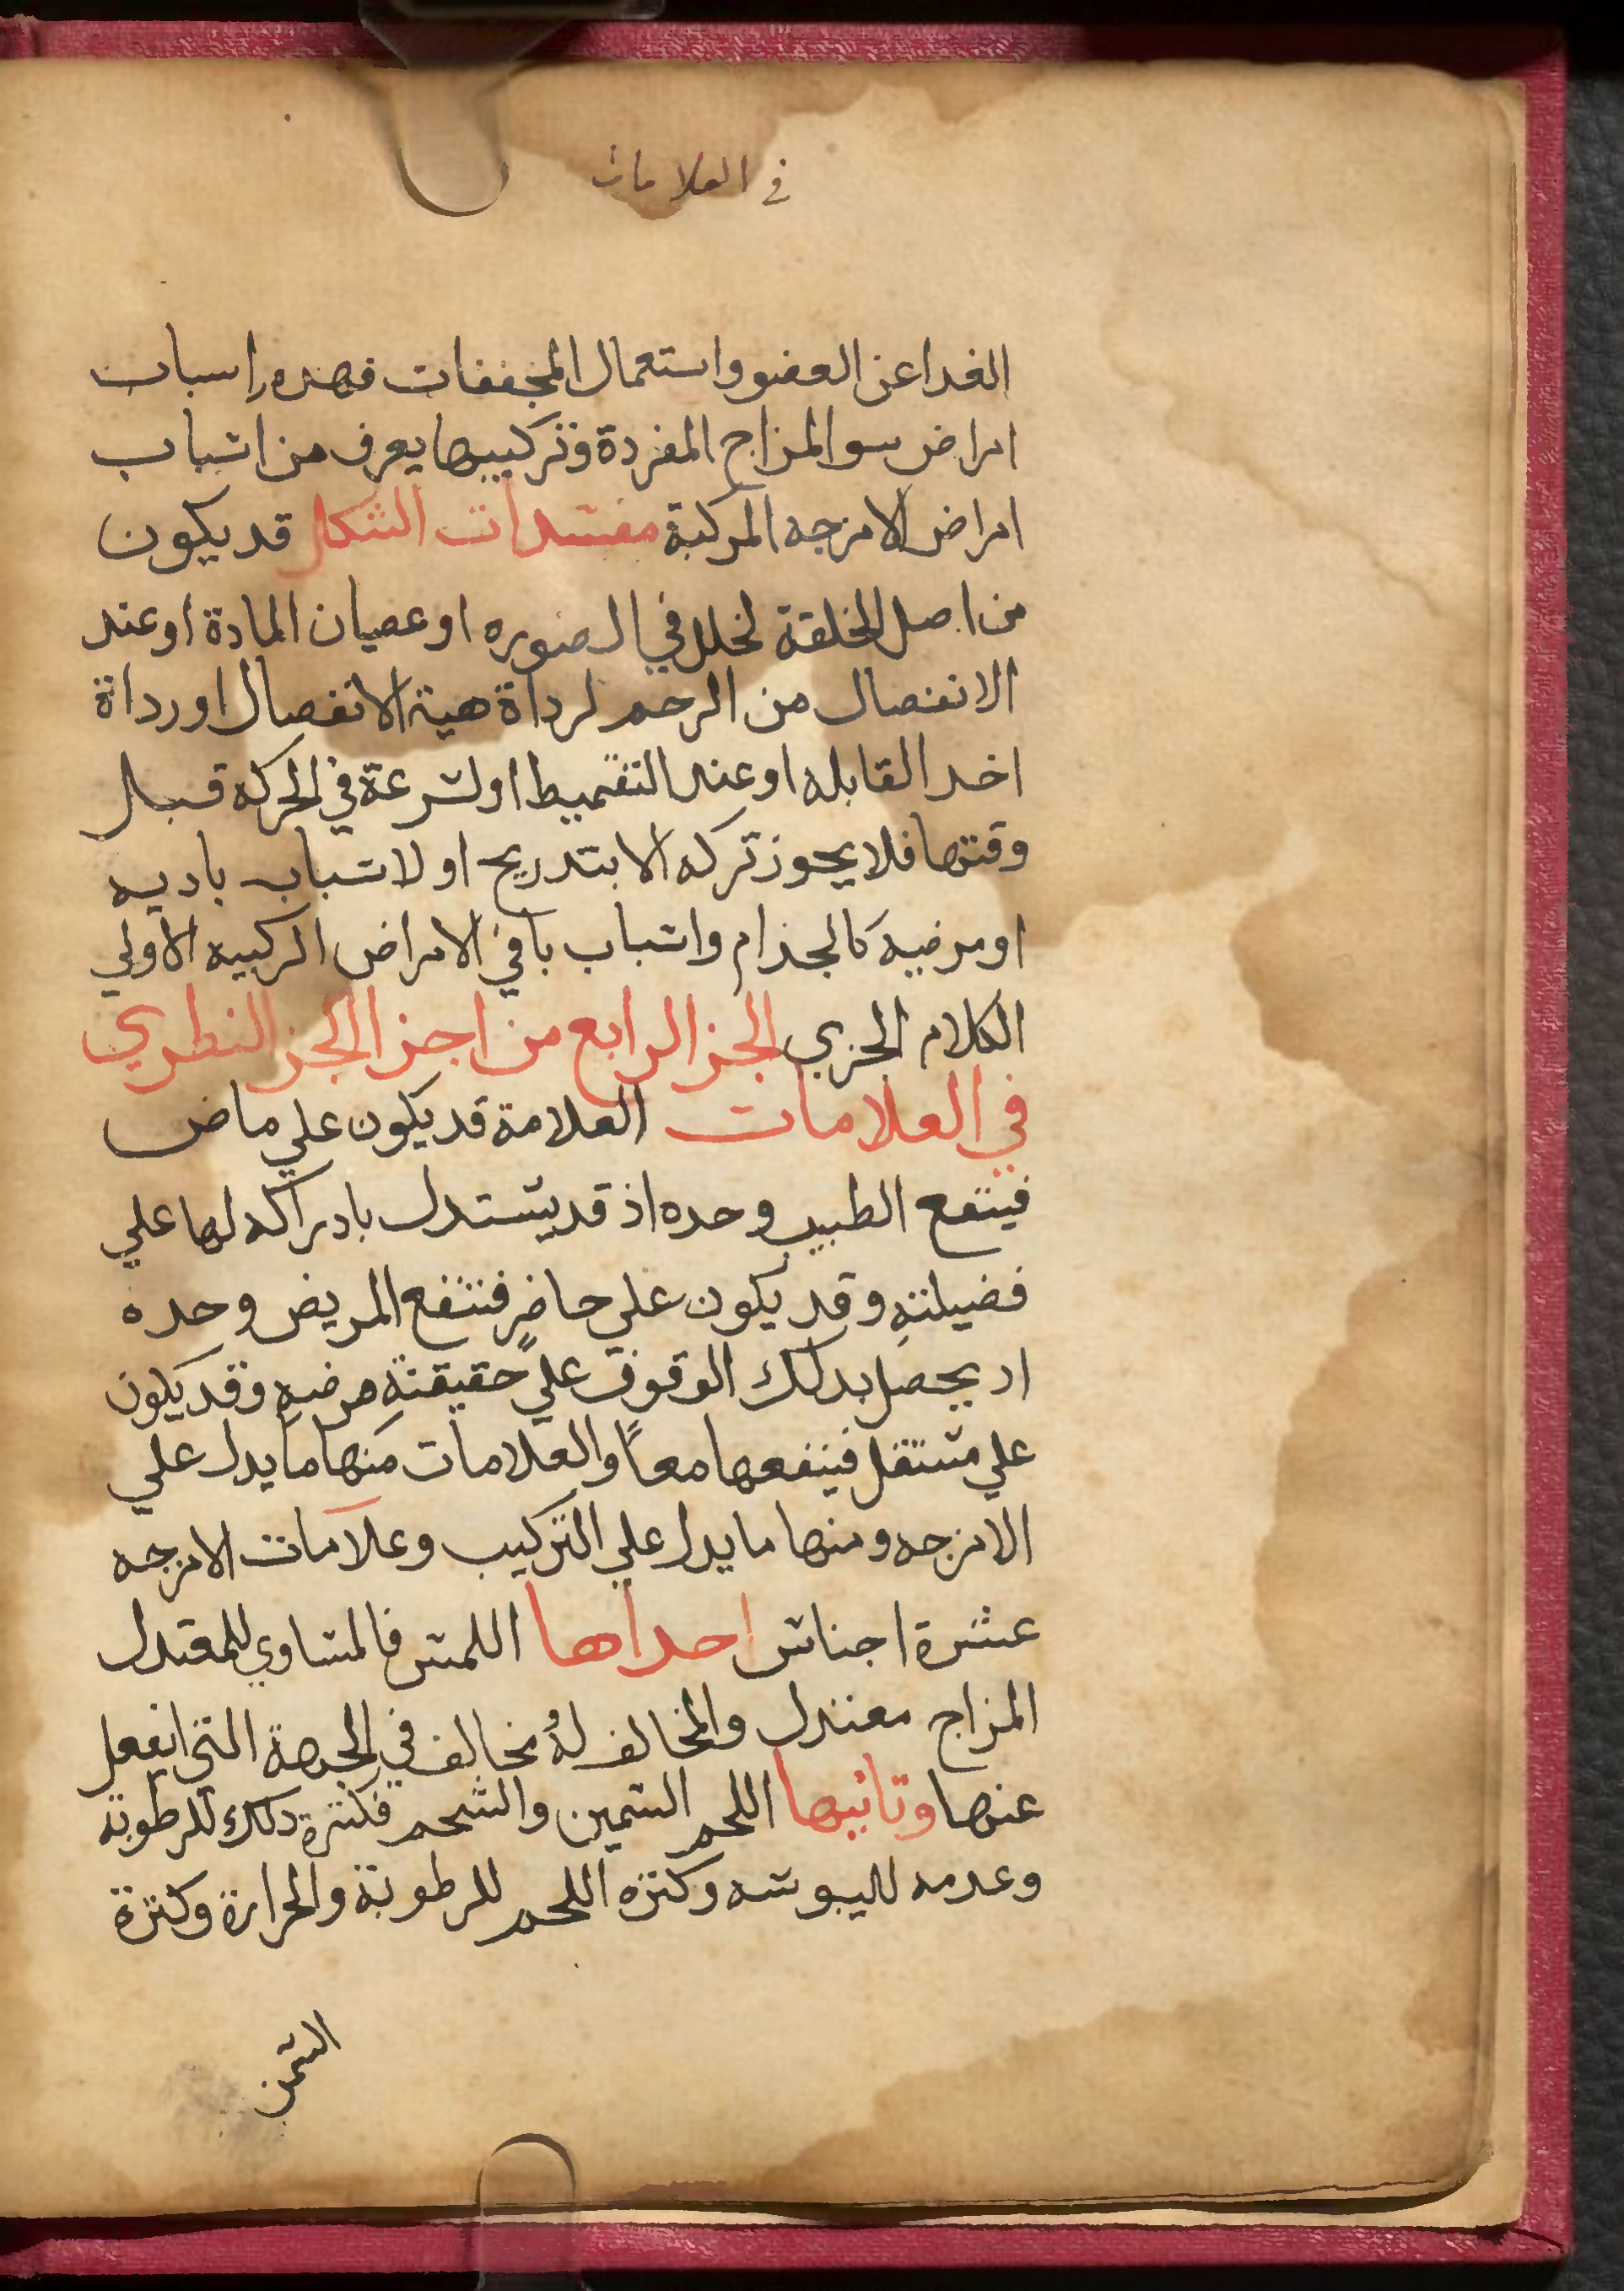 في العلامات
الغدا عن العضو واستعمال المجففات فهده اسباب
امراض سو المزاج المفردة وتركيبها يعرف من اسباب
امراض الامزجه المركبة مفسدات الشكل قد يكون
من اصل الخلقة لخلل في الصوره او عصيان المادة او عند
الانفصال من الرحم لرداة هية الانفصال او رداة
اخد القابله او عند التقميط او لسرعة في الحركة قبل
وقتها فلا يجوز تركه الا بتدريج او لاسباب باديه
او مرضيه كالجذام واسباب باقي الامراض الركبيه الاولي
الكلام الجزي الجز الرابع من اجزا الجز النظري
في العلامات العلامة قد يكون علي ماض
فينتفع الطبيب وحده اذ قد يستدل بادراكه لها علي
فضيلته وقد يكون علي حاضر فنتفع المريض وحده
اد يحصل بدلك الوقوف علي حقيقتة مرضه وقد يكون
علي مستقل فينفعها معاً والعلامات منها ما يدل علي
الامزجه ومنها ما يدل علي التركيب وعلامات الامزجه
عشرة اجناس احداها اللمس فالمساوي للمعتدل
المزاج معتدل والمخالف لهُ مخالف في الجهة التي انفعل
عنها وثانيها اللحم السمين والشحم فكثرة دلك للرطوبة
وعدمه لليبوسه وكثره اللحم للرطوبة والحرارة وكثرة
السمن